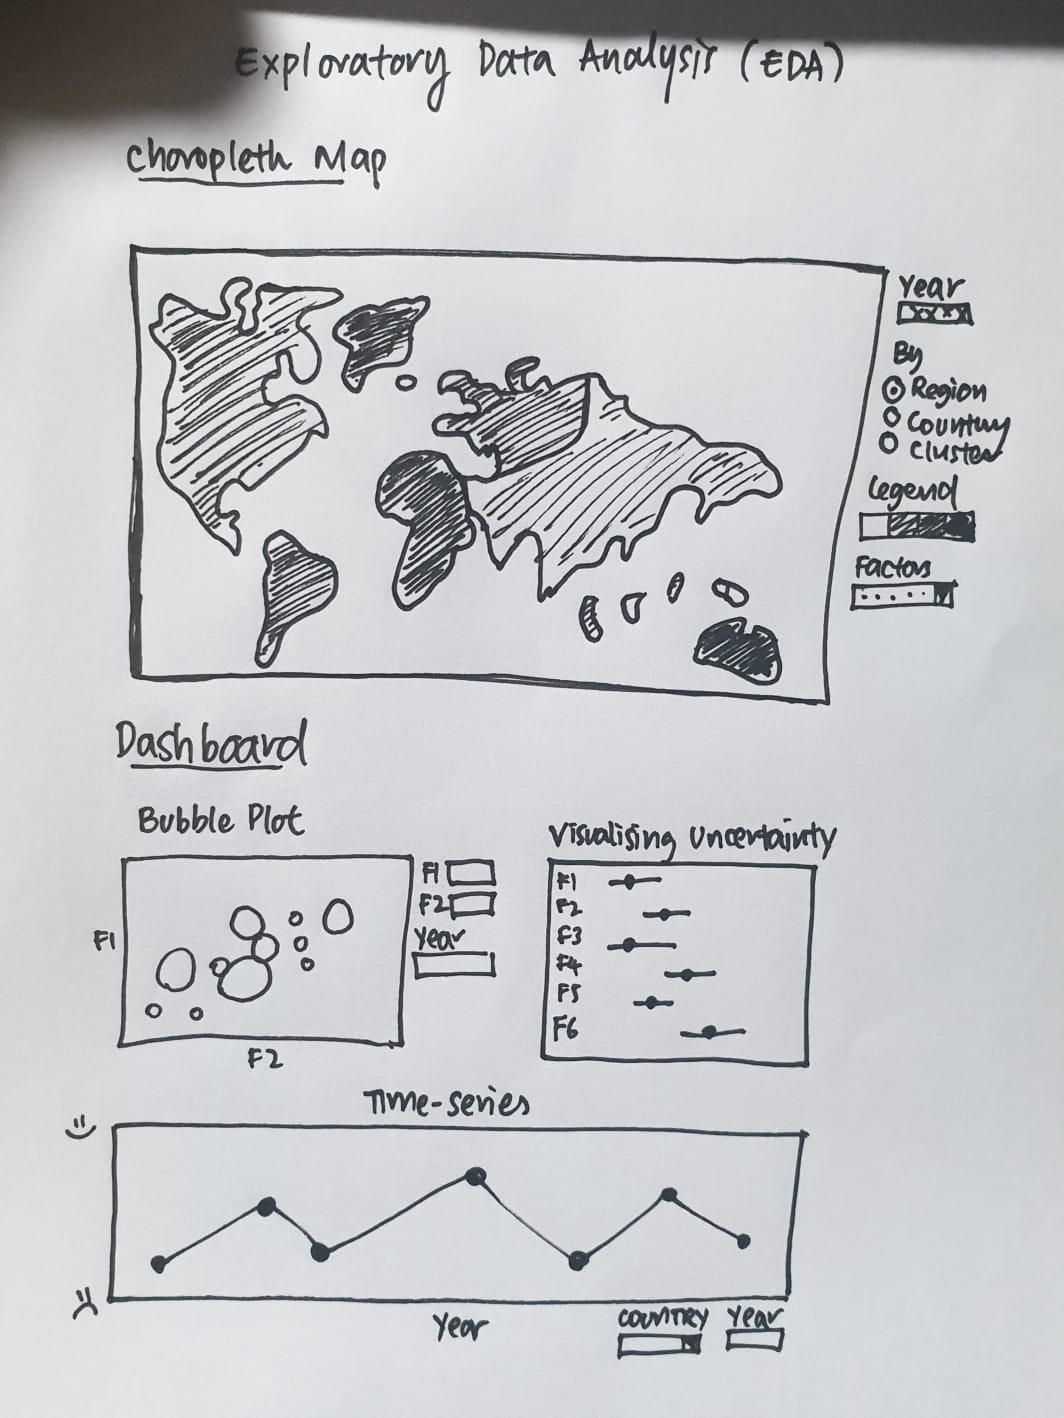 Exploratory Data Analysis (EDA)
Choropleth Map
Year
XXXX
By
Region
Country
Cluster
Legend
Factors
Dashboard
Bubble Plot
F1
F2
F1
F2
Year
Visualising Uncertainty
F1
F2
F3
F4
F5
F6
Time-series
Year
COUNTRY
Year